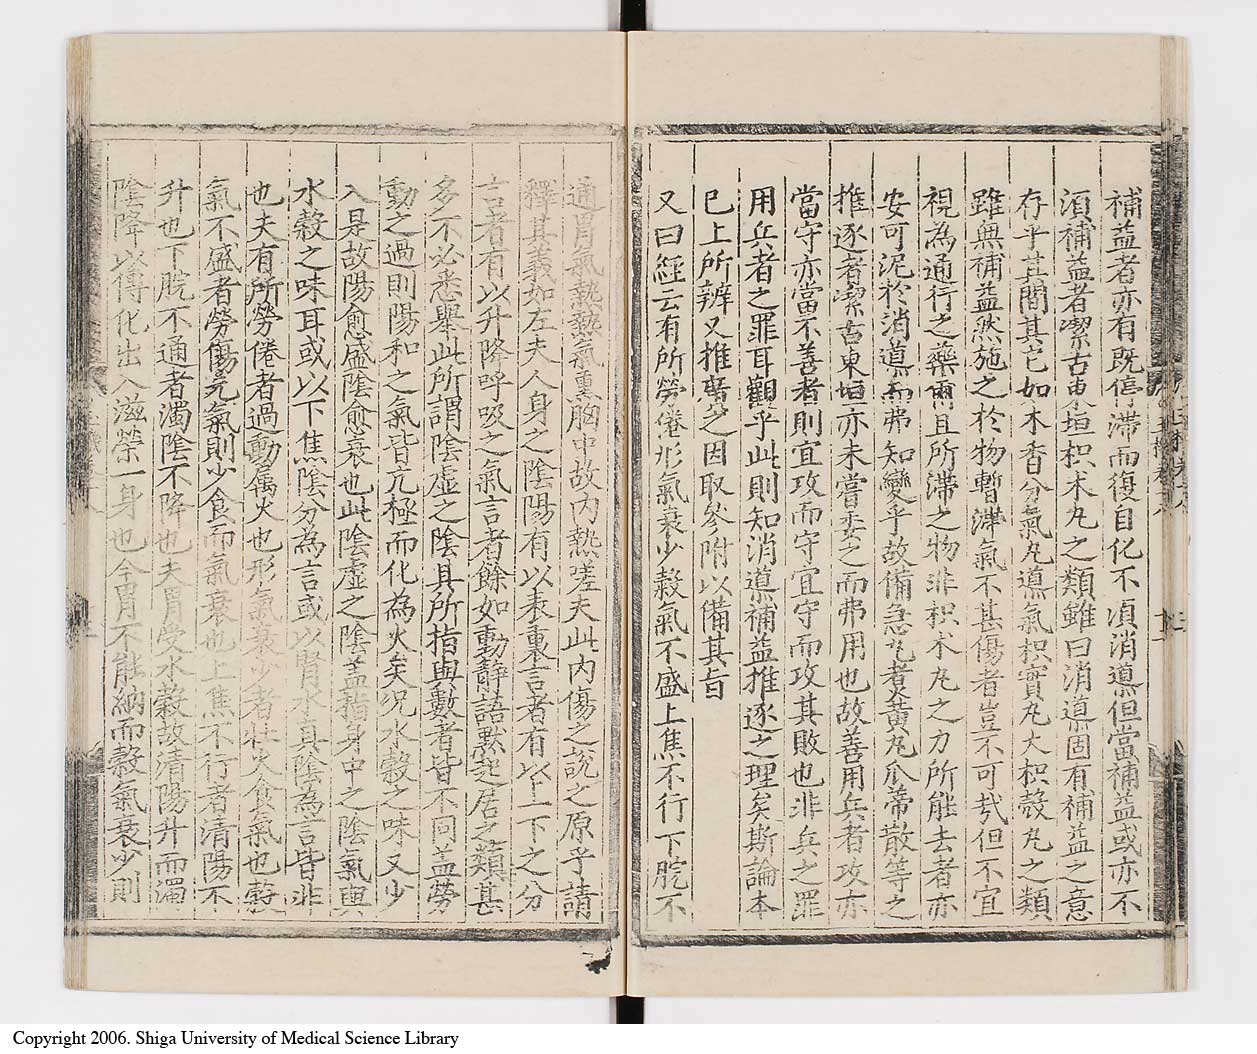 補益者亦有既停滯而復自化不湏消導但當補益或亦不
湏補益者㓗古東垣枳朮丸之類雖曰消導固有補益之意
存乎其間其它如木香分氣丸導氣枳實丸大枳殼丸之類
雖無補益然施之於物暫滯氣不甚傷者豈不可㦲但不宜
視為通行之藥爾且所滯之物非枳朮丸之力所能去者亦
安可泥於消導而弗知變乎故備急丸煑黃丸瓜蔕散等之
推逐者㓗古東垣亦未嘗委之而弗用也故善用兵者攻亦
當守亦當不善者則宜攻而守宜守而攻其敗也非兵之罪
用兵者之罪耳觀乎此則知消導補益推逐之理矣斯論本
已上所辨又推廣之因取參附以備其旨
又曰經云有所勞倦形氣衰少穀氣不盛上焦不行下脘不
通胃氣熱熱氣熏胸中故內熱嗟夫此內傷之說之原乎請
釋其義如左夫人身之陰陽有以表裏言者有以上下之分
言者有以升降呼吸之氣言者餘如動靜語默起居之類甚
多不必悉舉此所謂陰虛之陰其所指與數者皆不同盖勞
動之過則陽和之氣皆亢極而化為火矣况水穀之味又少
入是故陽愈盛陰愈衰也此陰虛之陰盖指身中之陰氣與
水穀之味耳或以下焦陰分為言或以腎水真陰為言皆非
也夫有所勞倦者過動属火也形氣衰少者壯火食氣也穀
氣不盛者勞傷元氣則少食而氣衰也上焦不行者清陽不
升也下脘不通者濁陰不降也夫胃受水穀故清陽升而濁
陰降以傳化出入滋榮一身也今胃不能納而穀氣衰少則
Copyright 2006. Shiga University of Medical Science Library